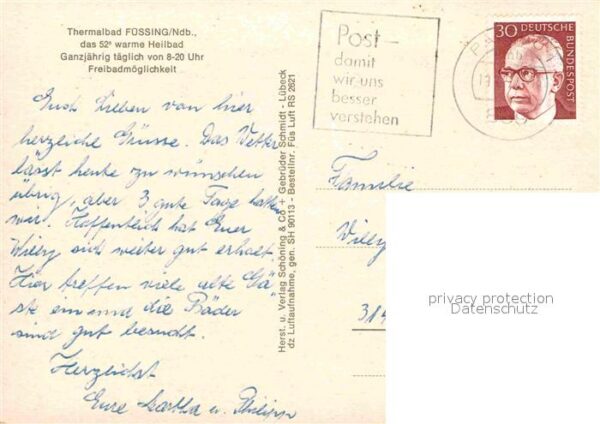 Thermalbad FÜSSING/Ndb.,
das 52° warme Heilbad
Ganzjährig täglich von 8-20 Uhr
Freibadmöglichkeit
Euch Lieben von hier
herzliche Grüsse. Das Wetter
lässt heute zu wünschen
übrig, aber 3 gute Tage hatten
wir. Hoffentlich hat Euer
Willy sich weiter gut erholt.
Hier treffen viele alte Gä-
ste ein und die Bäder
sind gut besucht.
Herzlichst
Eure Martha u. Philipp
Herst. u. Verlag Schöning & Co + Gebrüder Schmidt - Lübeck
dz Luftaufnahme, gen. SH 90113 - Bestellnr. Füs Luft RS 2621
Post-
damit
wir uns
besser
verstehen
30 DEUTSCHE
BUNDESPOST
Familie
Willy
314
privacy protection
Datenschutz